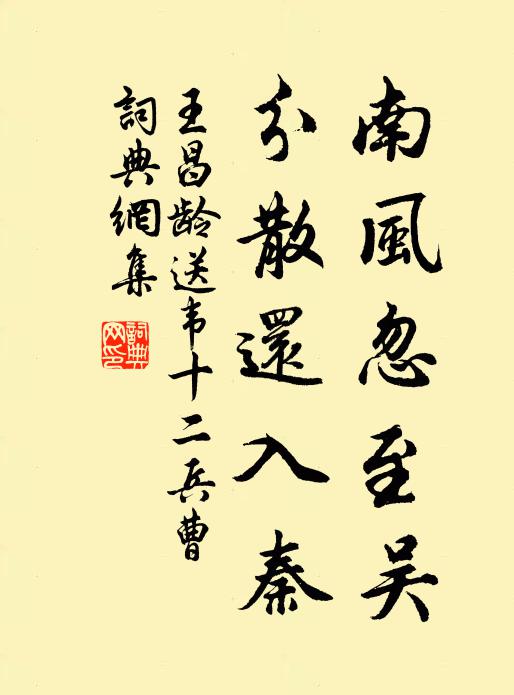 南風忽至吴
分散還入秦
王昌龄送韦十二兵曹
詞典網集
詞典網印